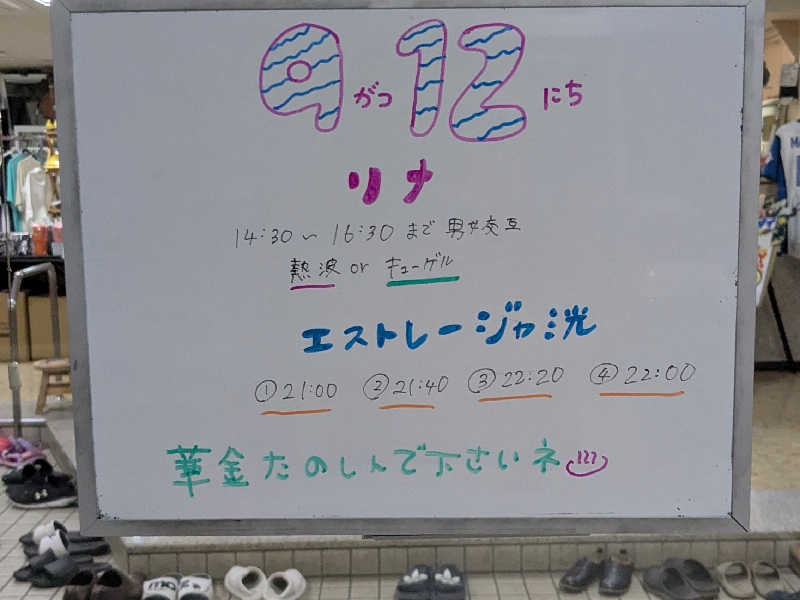 9がつ12にち
リナ
14:30～16:30まで男女交互
熱波 or キューゲル
エストレージャ洸
①21:00 ②21:40 ③22:20 ④22:00
華金たのしんで下さいネ